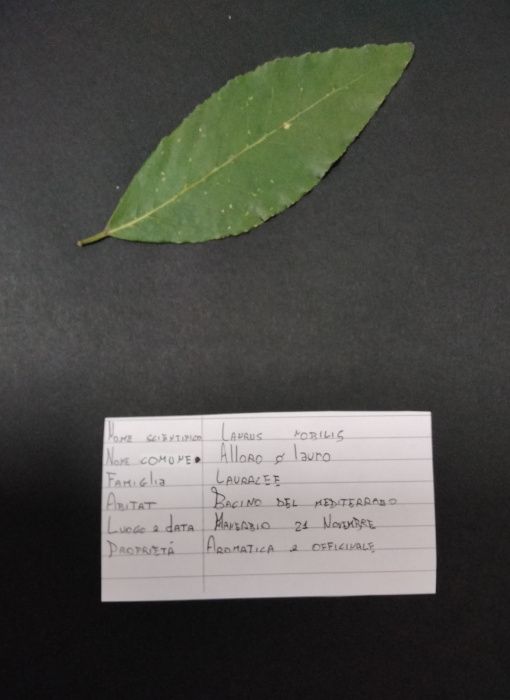 Nome scientifico Laurus nobilis
Nome comune Alloro o lauro
Famiglia Lauracee
Abitat Bacino del Mediterrado
Luogo e data Manerbio 21 Novembre
Proprietá Aromatica e officinale